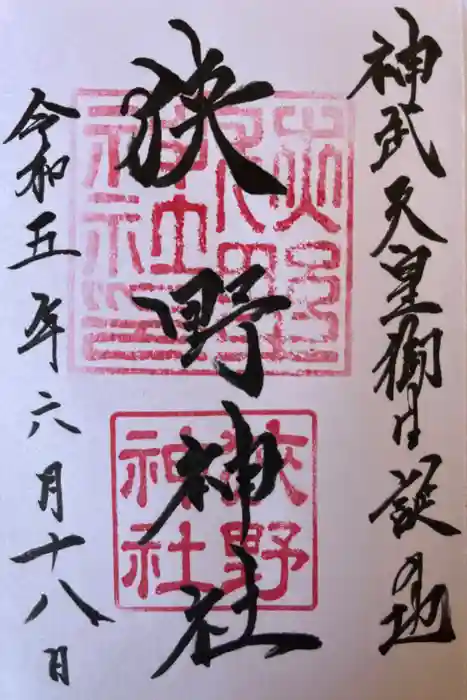 神武天皇御生誕の地
狭野神社
狭野
神社
令和五年六月十八日